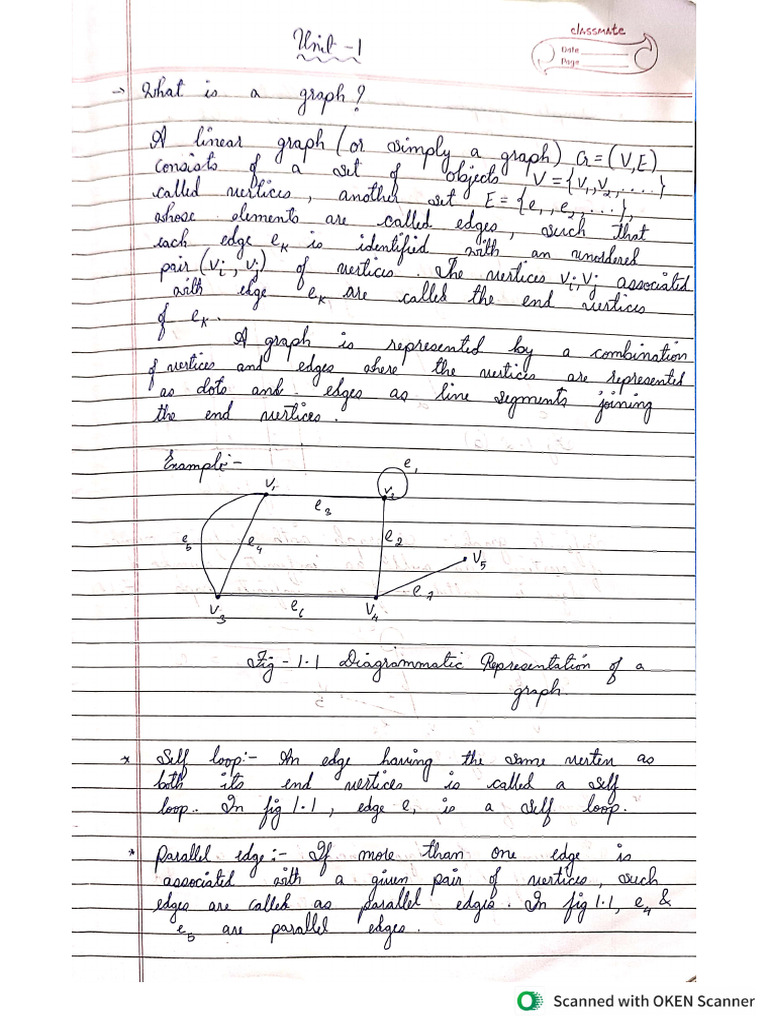 Unit - 1
classmate
Date
Page
→ What is a graph?
A linear graph (or simply a graph) G = (V, E)
consists of a set of objects V = {V₁, V₂, ....}
called vertices, another set E = {e₁, e₂, ...},
whose elements are called edges, such that
each edge eₖ is identified with an unordered
pair (Vᵢ, Vⱼ) of vertices. The vertices Vᵢ, Vⱼ associated
with edge eₖ are called the end vertices
of eₖ.
A graph is represented by a combination
of vertices and edges where the vertices are represented
as dots and edges as line segments joining
the end vertices.
Example :-
e₁
V₁ V₂
e₃
e₅ e₄ e₂
V₅
e₇
V₃ e₆ V₄
Fig - 1.1 Diagrammatic Representation of a
graph
* Self loop :- An edge having the same vertex as
both its end vertices is called a self
loop. In fig 1.1, edge e₁ is a self loop.
* Parallel edge :- If more than one edge is
associated with a given pair of vertices, such
edges are called as parallel edges. In fig 1.1, e₄ &
e₅ are parallel edges.
Scanned with OKEN Scanner